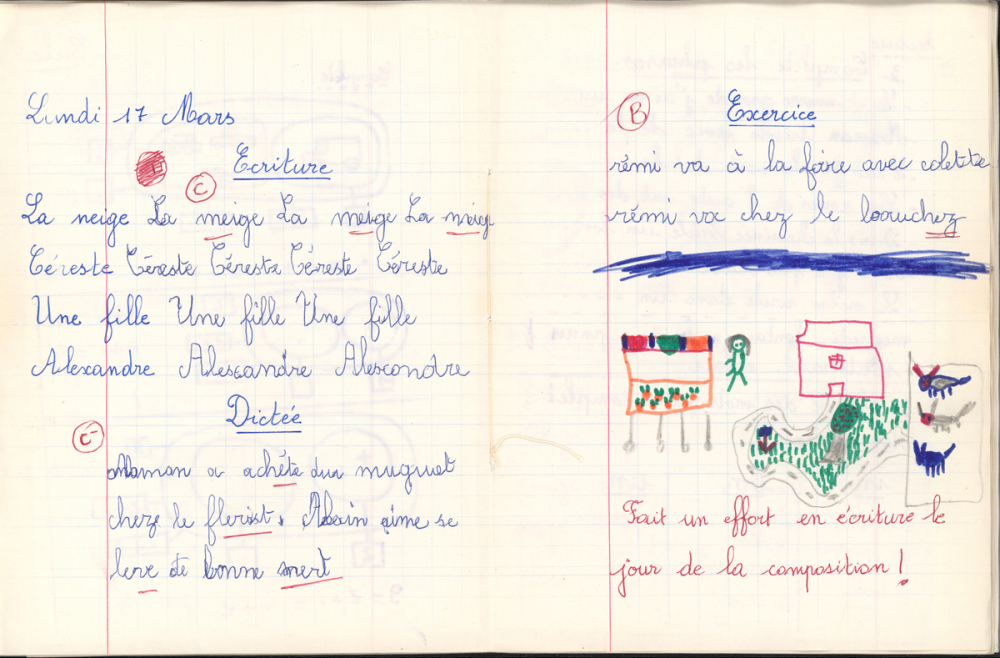 Lundi 17 Mars
C
Ecriture
La neige La meige La meige La meige
Céreste Céreste Céreste Céreste Céreste
Une fille Une fille Une fille
Alexandre Alescandre Alescondre
Dictée
C-
Maman a achéte du muguet
cheze le flerist. Alain aime se
leve de bonne mert
B
Exercice
rémi va à la foire avec colette
rémi va chez le bouchez
Fait un effort en écriture le
jour de la composition !